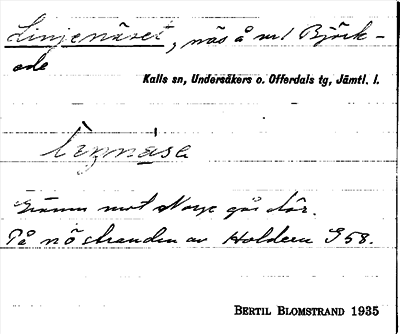 Linjenäset, näs å vid Björk-
ede
Kalls sn, Undersåkers o. Offerdals tg, Jämtl. l.
Gränsen mot Norge går där.
På nöstranden av Holdern G58.
BERTIL BLOMSTRAND 1935